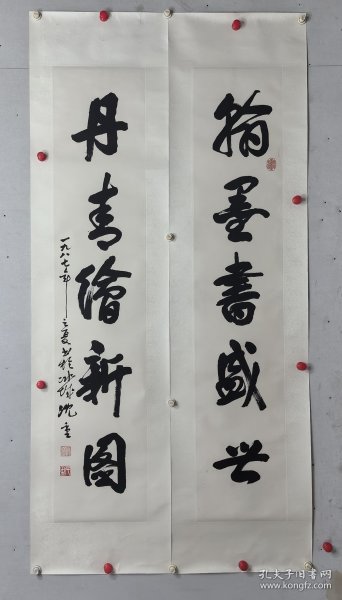 翰墨書盛世
丹青繪新图
一九八七年之夏书于冰城沈重
孔夫子旧书网
www.kongfz.com